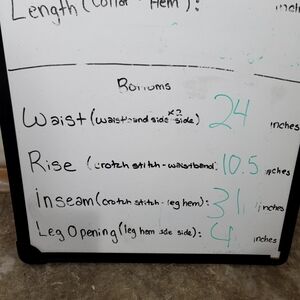 Length (Collar - Hem): inch
Bottoms
Waist (waistband side side) x2 24 inches
Rise (crotch stitch - waistband): 10.5 inches
inseam (crotch stitch - leg hem): 31 inches
Leg Opening (leg hem side side): 4 inches